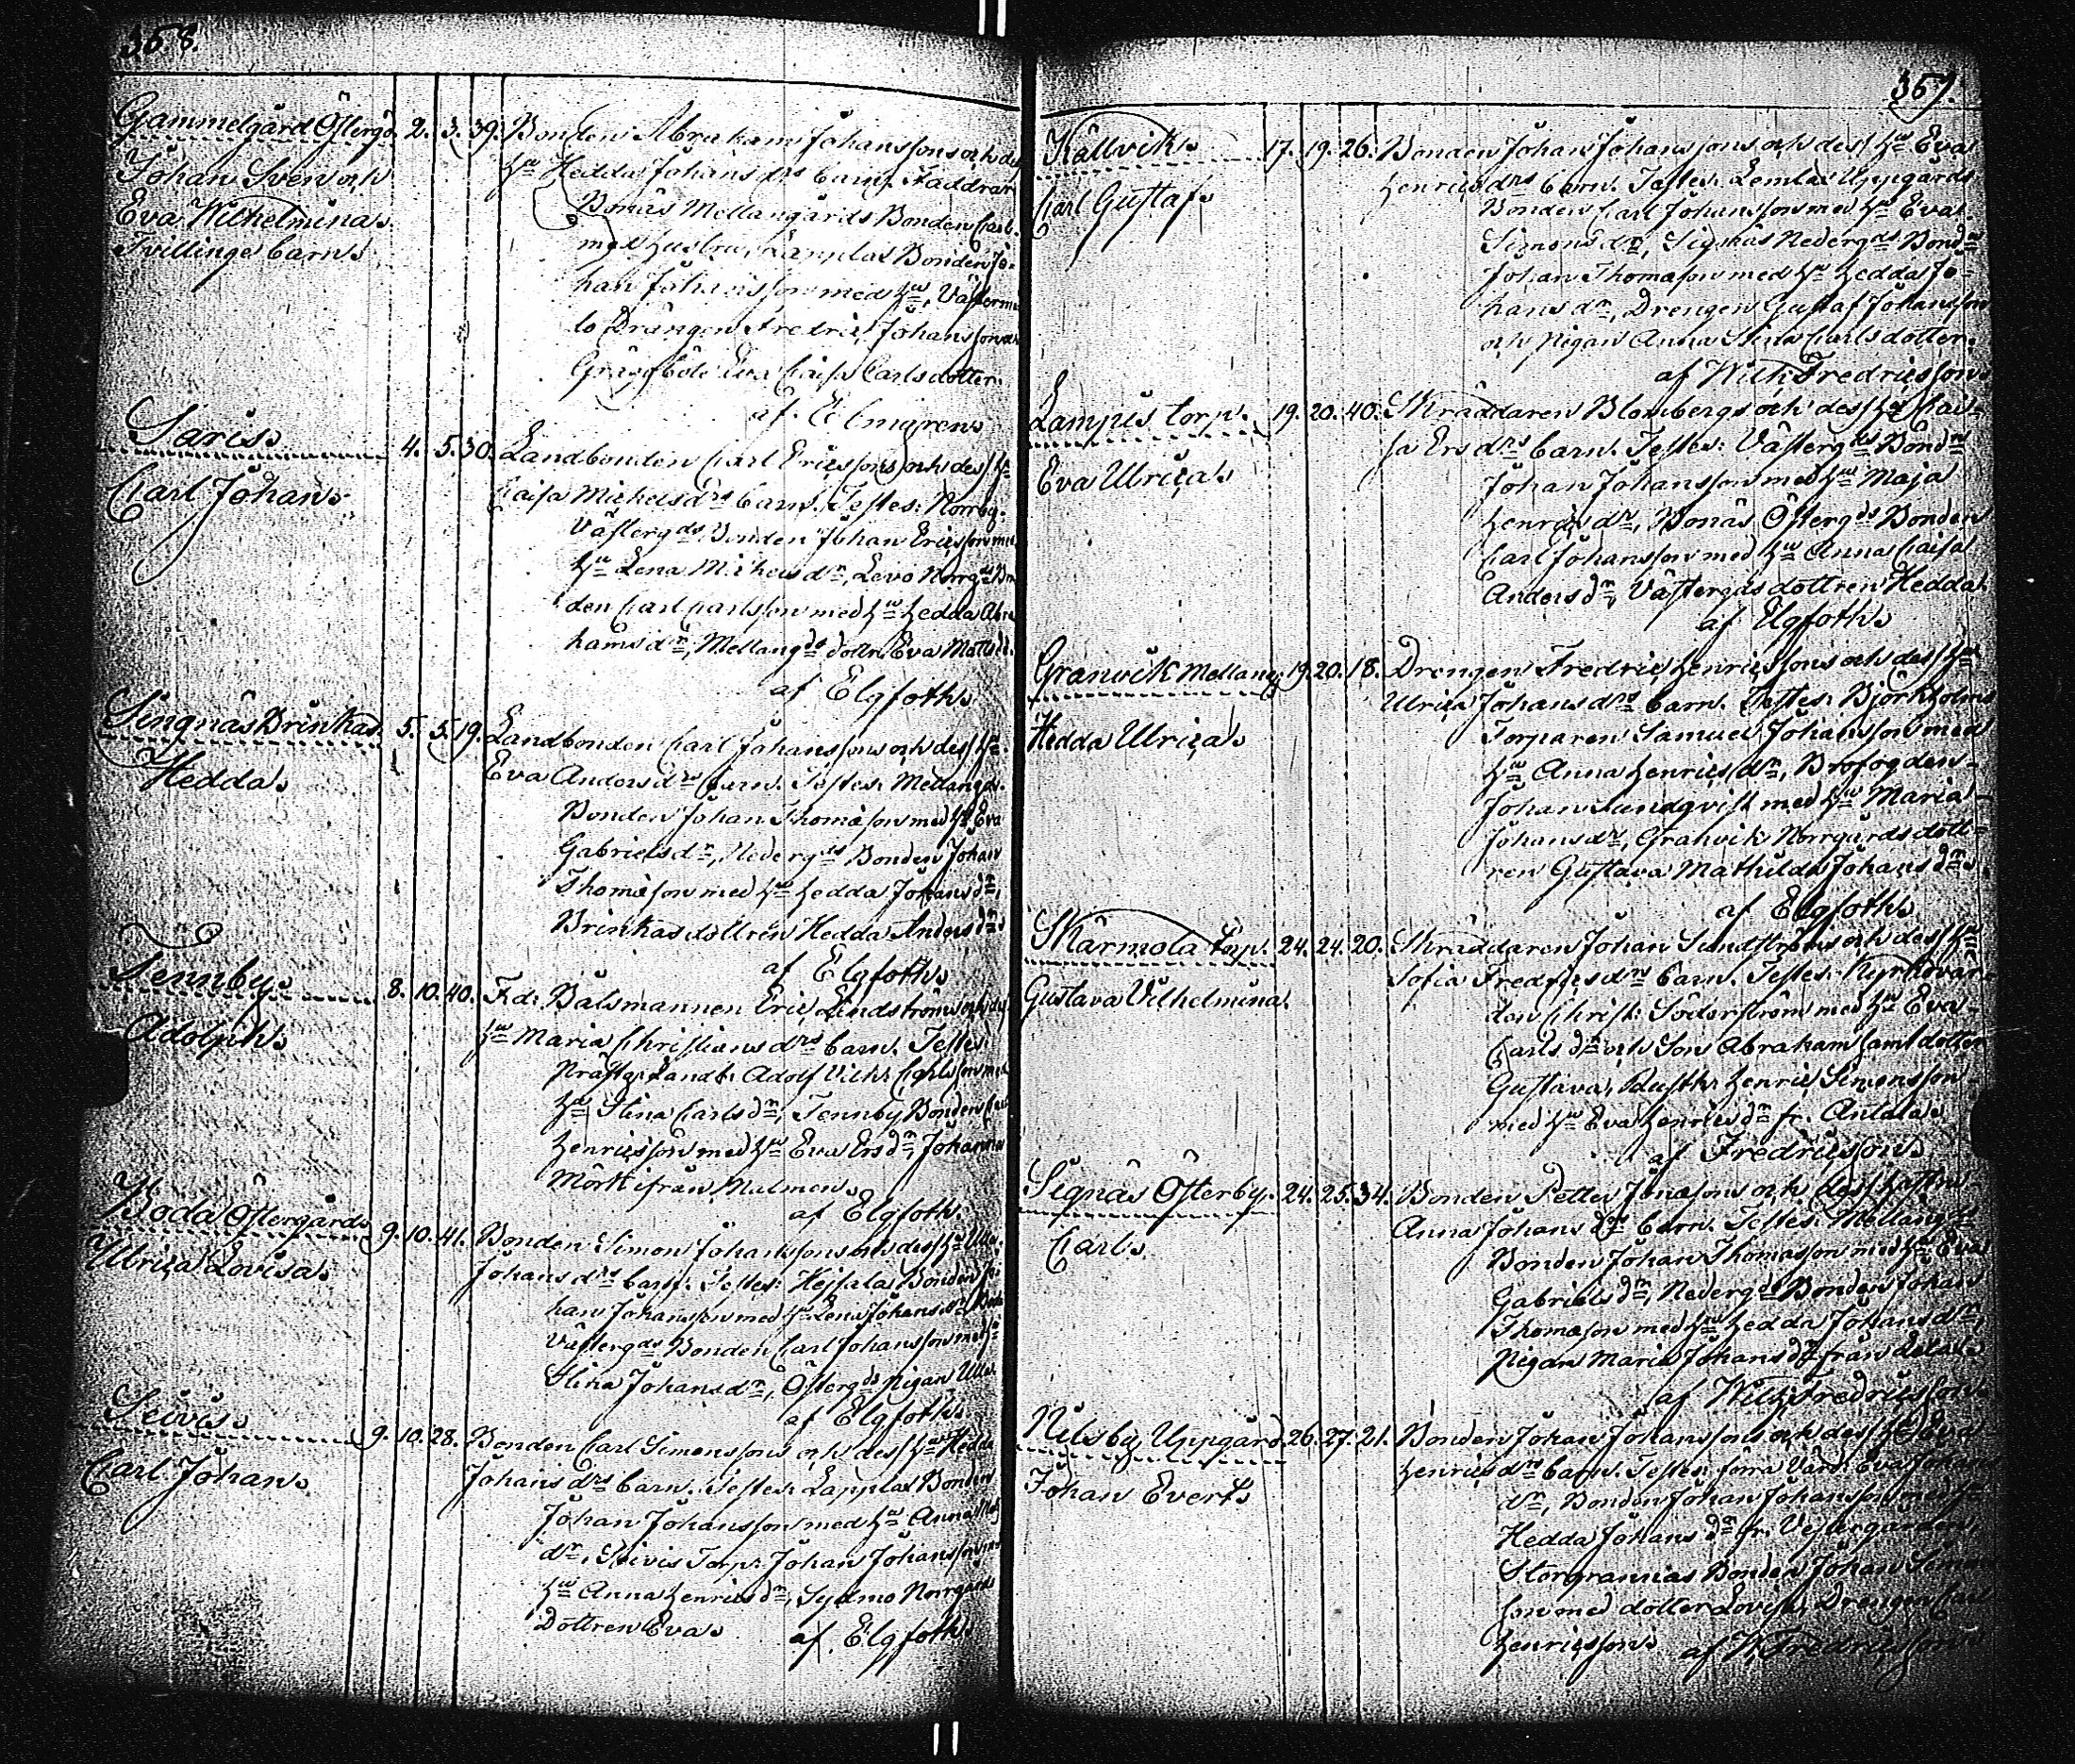 358.
Gammelgård Österg. 2. 3. 39. Bonden Abraham Johanssons och dess
Johan Sven och
Hu Hedda Johans drs barn. Faddrar
Eva Wilhelmina.
Bonäs Mellangårds Bonden Carl
Tvillinge barn.
med hustru, Lapplax Bonden Jo-
han Johansson med Hu,
lo Drängen Fredric Johansson
Gräggböle Eva Caisa Carlsdotter.
af Elmgren.
Saris. 4. 5. 30. Landbonden Carl Ericssons och dess Hu
Carl Johan.
Caisa Michels drs barn. Testes: Norrby
Västergds Bonden Johan Ericsson med
Hu Lena Michels dr, Levo Norrgds Bon-
den Carl Carlsson med Hu Hedda Abra-
hams dr, Mellangds dottr. Eva Matts d.
af Elgfoth.
Singnäs Brinkas. 5. 5. 19. Landbonden Carl Johanssons och dess Hu
Hedda.
Eva Anders drs barn. Testes: Mellangds
Bonden Johan Thomasson med Hu Eva
Gabriels dr, Nedergds Bonden Johan
Thomasson med Hu Hedda Johans dr,
Brinkas dottren Hedda Anders dr
af Elgfoth.
Tennby. 8. 10. 40. F.d. Båtsmannen Eric Lindströms och dess
Adolph.
Hu Maria Christians drs barn. Testes:
Prästg. Landb. Adolf Vilh. Carlsson med
Hu Stina Carls dr, Tennby Bonden Carl
Henricsson med Hu Eva Ers dr, Johanna
Mört ifrån Malmen.
af Elgfoth.
Boda Östergårds 9. 10. 41. Bonden Simon Johanssons och dess Hu Ulla
Ulrica Lovisa.
Johans drs barn. Testes: Hejsala Bonden Jo-
han Johansson med Hu Lena Johans dr, Boda
Västergds Bonden Carl Johansson med Hu
Stina Johans dr, Östergds Pigan Ulla.
af Elgfoth.
Seivis. 9. 10. 28. Bonden Carl Simonssons och dess Hu Hedda
Carl Johan.
Johans drs barn. Testes: Lapplax Bonden
Johan Johansson med Hu Anna
dr, Seivis Torp. Johan Johansson med
Hu Anna Henrics dr, Sydmo Norrgårds
Dottren Eva. af. Elgfoth.
359.
Källvik. 17. 19. 26. Bonden Johan Johanssons och dess Hu Eva
Carl Gustaf.
Henrics drs barn. Testes: Lemlax Uppgårds
Bonden Carl Johansson med Hu Eva
Simons dr, Signäs Nedergds Bondn
Johan Thomasson med Hu Hedda Jo-
hans dr, Drengen Gustaf Johansson
och Pigan Anna Stina Carlsdotter.
af Wilh. Fredricsson.
Lampis torp. 19. 20. 40. Skräddaren Blombergs och dess Hu Cai-
Eva Ulrica.
sa Ers drs barn. Testes: Västergds Bondn
Johan Johansson med Hu Maja
Henrics dr, Bonäs Östergds Bonden
Carl Johansson med Hu Anna Caisa
Anders dr, Västergds dottren Hedda.
af Elgfoth.
Granvik Mellang. 19. 20. 18. Drengen Fredric Henricssons och dess Hu
Hedda Ulrica.
Ulrica Johans drs barn. Testes: Björkholms
Torparen Samuel Johansson med
Hu Anna Henrics dr, Brofogden
Johan Sundqvist med Hu Maria
Johans dr, Granvik Norrgårds dott-
ren Gustava Mathilda Johans dr.
af Elgfoth.
Skärmola torp. 24. 24. 20. Skräddaren Johan Sundströms och dess Hu
Gustava Vilhelmina.
Sofia Fredrics drs barn. Testes: Kyrkovär-
den Christ: Söderström med Hu Eva
Carls dr och Son Abraham samt dotter
Gustava, Rusth. Henric Simonsson
med Hu Eva Henrics dr fr. Antala.
af Fredricsson.
Signäs Österby. 24. 25. 34. Bonden Petter Jonassons och dess Hustru
Carl.
Anna Johans drs barn. Testes: Mellangds
Bonden Johan Thomasson med Hu Eva
Gabriels dr, Nedergds Bonden Johan
Thomasson med Hu Hedda Johans dr,
Pigan Maria Johans dr från
af Wilh. Fredricsson.
Nilsby Uppgård. 26. 27. 21. Bonden Johan Johanssons och dess Hu Eva
Johan Evert.
Henrics drs barn. Testes: förra Värd. Eva Johans
dr, Bonden Johan Johansson med Hu
Hedda Johans dr fr. Vestergården,
Storgrannas Bonden Johan
son med dotter Lovisa, Drengen Carl
Henricsson. af W. Fredricsson.